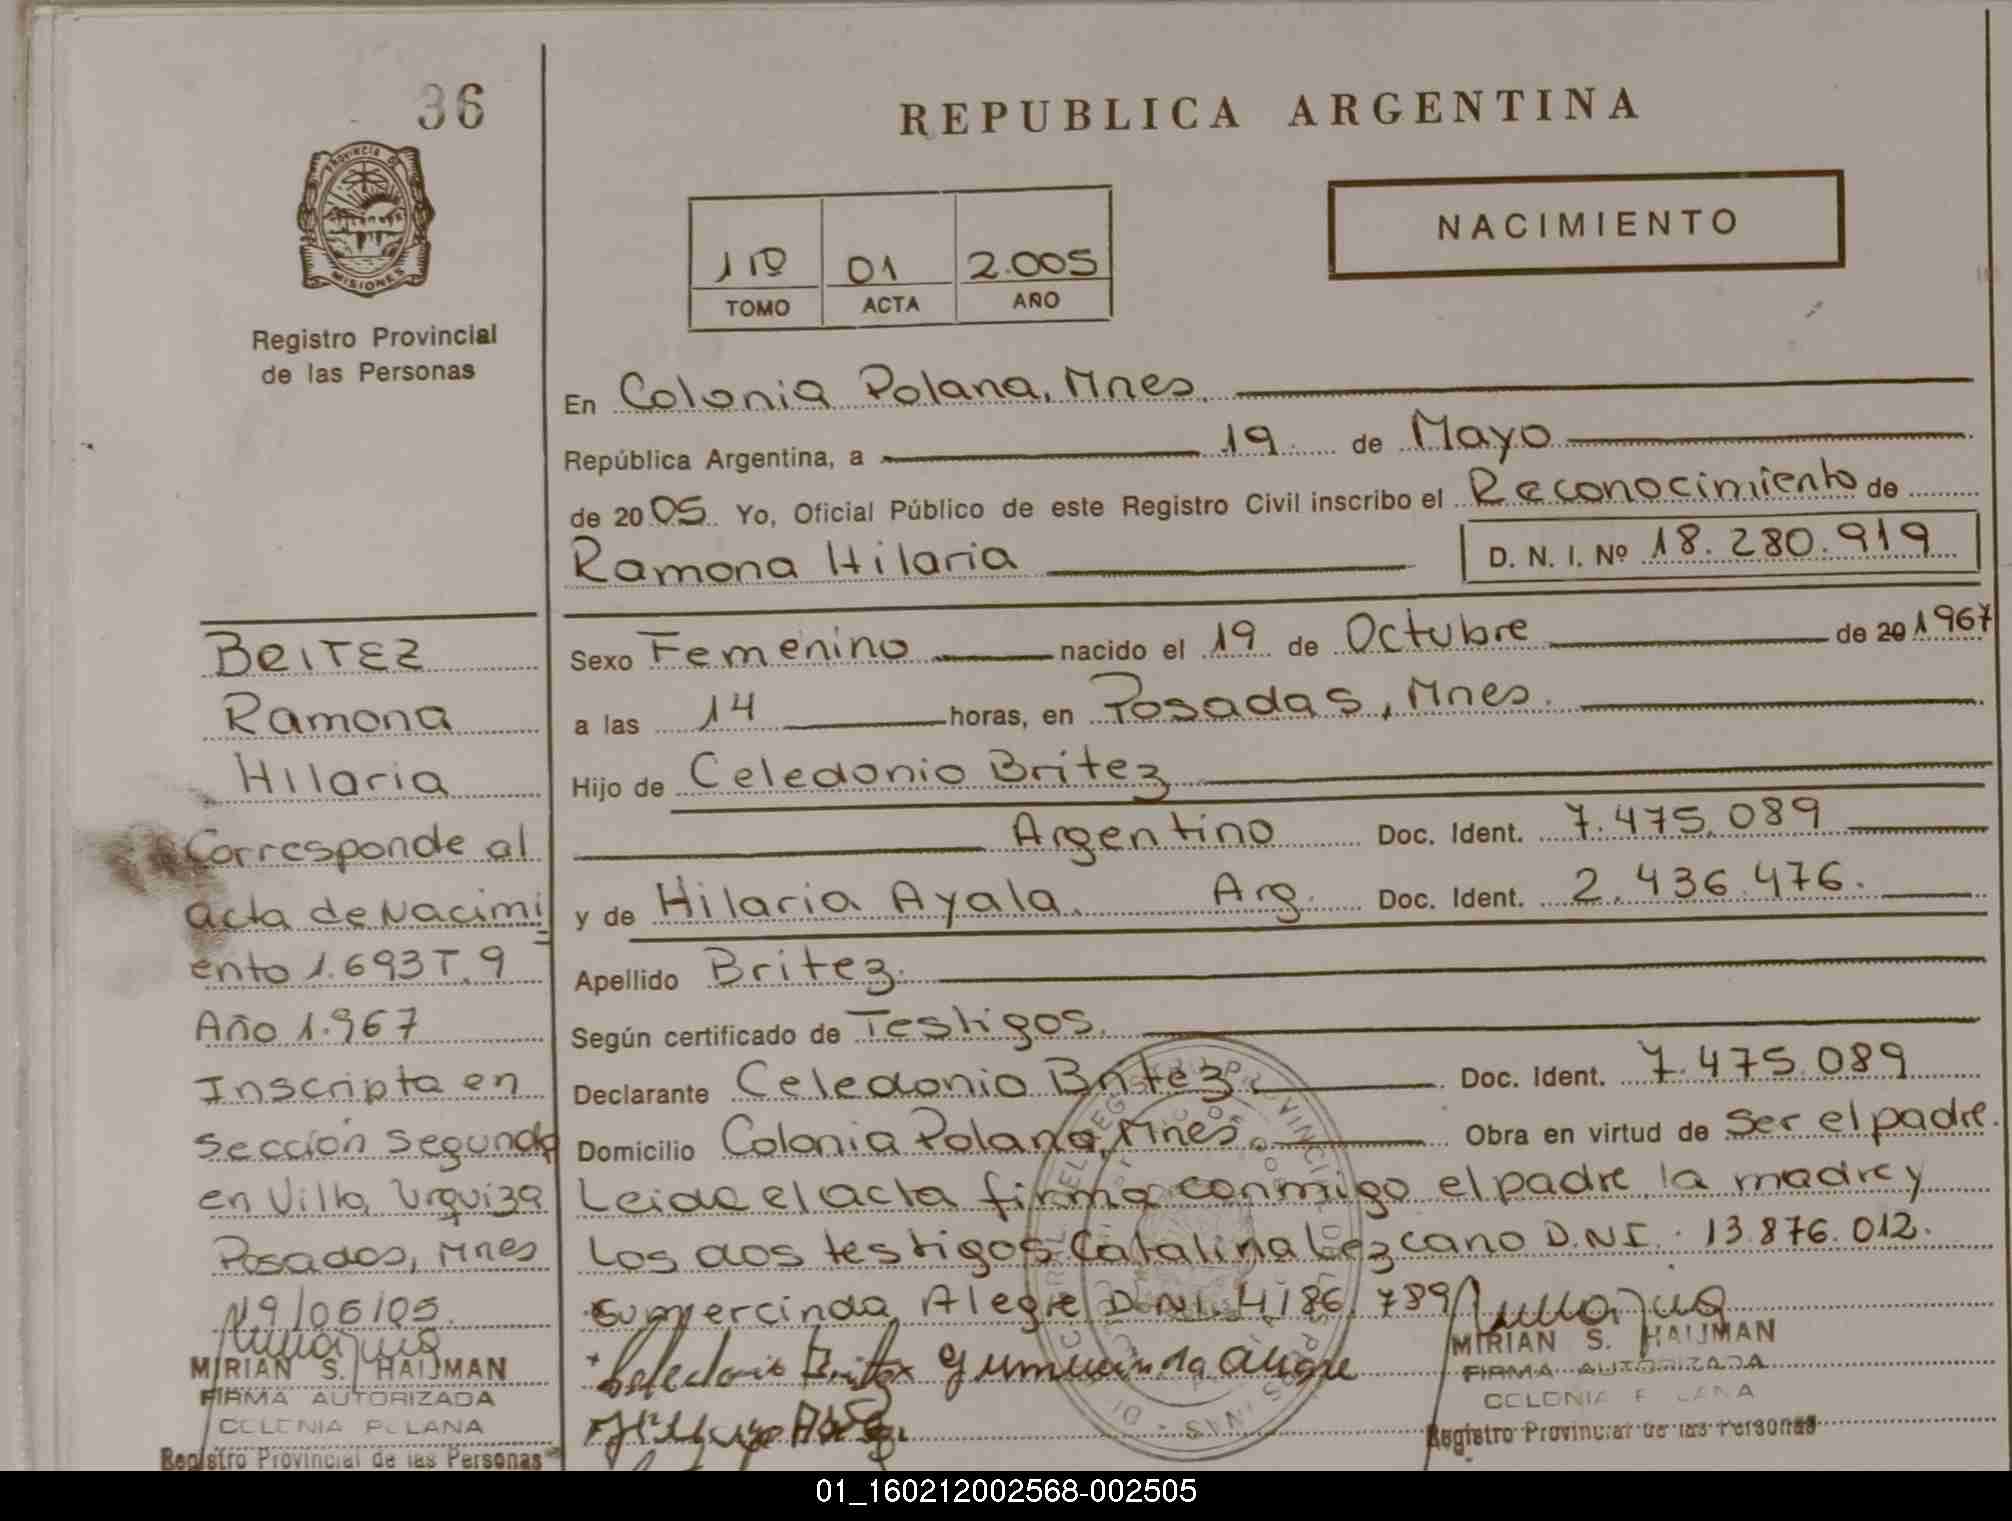 36
PROVINCIA DE
MISIONES
Registro Provincial
de las Personas
REPUBLICA ARGENTINA
NACIMIENTO
01 2.005
TOMO ACTA AÑO
En Colonia Polana, Mnes.
República Argentina, a 19 de Mayo
de 2005. Yo, Oficial Público de este Registro Civil inscribo el Reconocimiento de
Ramona Hilaria D. N. I. Nº 18.280.919
Sexo Femenino nacido el 19 de Octubre de 20 1967
a las 14 horas, en Posadas, Mnes.
Hijo de Celedonio Britez
Argentino Doc. Ident. 7.475.089
y de Hilaria Ayala. Arg. Doc. Ident. 2.436.476.
Apellido Britez.
Según certificado de Testigos.
Declarante Celedonio Britez Doc. Ident. 7.475.089
Domicilio Colonia Polana, Mnes. Obra en virtud de Ser el padre.
Leida el acta firma conmigo el padre, la madre y
los dos testigos Catalina Lezcano D.N.I. 13.876.012.
Gumercinda Alegre D.N.I. 4.186.789
Celedonio Britez Gumercinda Alegre
MIRIAN S. HAIJMAN
FIRMA AUTORIZADA
COLONIA POLANA
Registro Provincial de las Personas
BRITEZ
Ramona
Hilaria
Corresponde al
acta de Nacimi
ento 1.693 T. 9
Año 1.967
Inscripta en
sección segunda
en Villa Urquiza
Posadas, Mnes
19/05/05.
MIRIAN S. HAIJMAN
FIRMA AUTORIZADA
COLONIA POLANA
Registro Provincial de las Personas
01_160212002568-002505